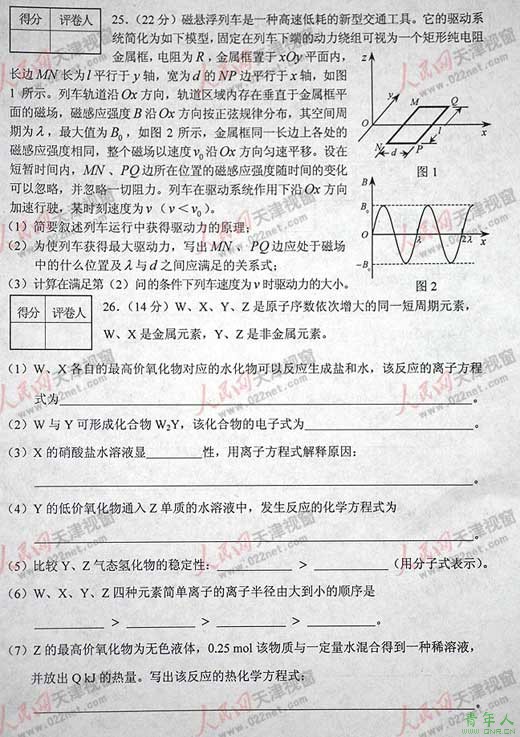 得分 评卷人
25.(22分)磁悬浮列车是一种高速低耗的新型交通工具。它的驱动系
统简化为如下模型,固定在列车下端的动力绕组可视为一个矩形纯电阻
金属框,电阻为R,金属框置于xOy平面内,
长边MN长为l平行于y轴,宽为d的NP边平行于x轴,如图
1所示。列车轨道沿Ox方向,轨道区域内存在垂直于金属框平
面的磁场,磁感应强度B沿Ox方向按正弦规律分布,其空间周
期为λ,最大值为B₀,如图2所示,金属框同一长边上各处的
磁感应强度相同,整个磁场以速度v₀沿Ox方向匀速平移。设在
短暂时间内,MN、PQ边所在位置的磁感应强度随时间的变化
可以忽略,并忽略一切阻力。列车在驱动系统作用下沿Ox方向
加速行驶,某时刻速度为v(v<v₀)。
(1)简要叙述列车运行中获得驱动力的原理;
(2)为使列车获得最大驱动力,写出MN、PQ边应处于磁场
中的什么位置及λ与d之间应满足的关系式;
(3)计算在满足第(2)问的条件下列车速度为v时驱动力的大小。
z
y
M
Q
O
l
x
N
d
P
图1
B
B₀
O
λ
2λ
x
-B₀
图2
得分 评卷人
26.(14分)W、X、Y、Z是原子序数依次增大的同一短周期元素,
W、X是金属元素,Y、Z是非金属元素。
(1)W、X各自的最高价氧化物对应的水化物可以反应生成盐和水,该反应的离子方程
式为____。
(2)W与Y可形成化合物W₂Y,该化合物的电子式为____。
(3)X的硝酸盐水溶液显____性,用离子方程式解释原因:
____。
(4)Y的低价氧化物通入Z单质的水溶液中,发生反应的化学方程式为
____。
(5)比较Y、Z气态氢化物的稳定性:____ > ____(用分子式表示)。
(6)W、X、Y、Z四种元素简单离子的离子半径由大到小的顺序是
____ > ____ > ____ > ____。
(7)Z的最高价氧化物为无色液体,0.25 mol该物质与一定量水混合得到一种稀溶液,
并放出Q kJ的热量。写出该反应的热化学方程式:
____。
人民网天津视窗
www.022net.com
青年人
www.QNR.CN